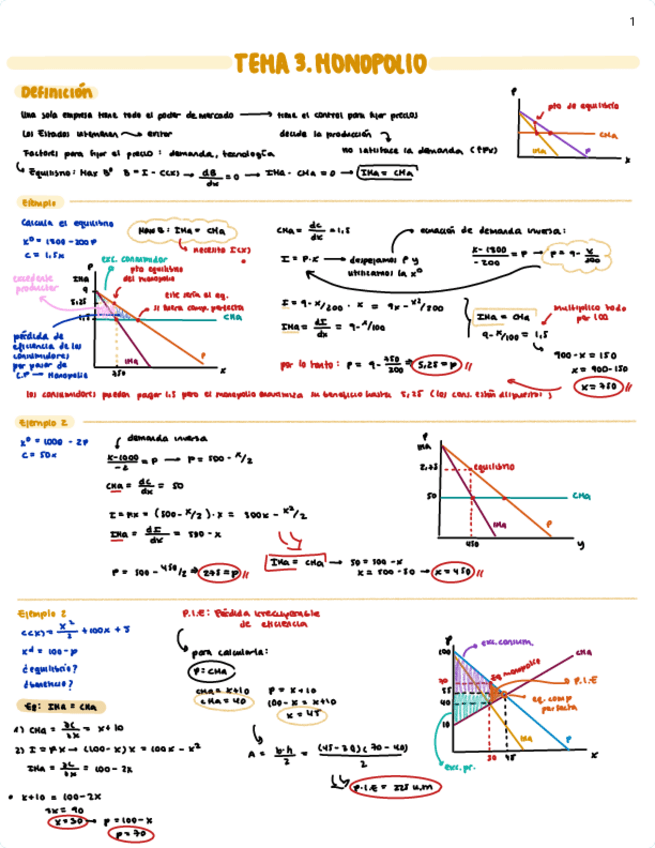 1
TEMA 3. MONOPOLIO
Definición
Una sola empresa tiene todo el poder de mercado → tiene el control para fijar precios
Los Estados intervienen → evitar
decide la producción
Factores para fijar el precio: demanda, tecnología
no satisface la demanda (↑Px)
Equilibrio: Max Bº B = I - C(x) → dB/dx = 0 → IMa - CMa = 0 → IMa = CMa
P
pto de equilibrio
CMa
IMa
P
x
Ejemplo
Calcula el equilibrio
xᴰ = 1800 - 200P
C = 1,5x
Max B: IMa = CMa
necesito I(x)
CMa = dc/dx = 1,5
I = P·x → despejamos P y
utilizamos la xᴰ
ecuación de demanda inversa:
x-1800/-200 = P → P = 9 - x/200
I = 9 - x/200 · x = 9x - x²/200
IMa = dI/dx = 9 - x/100
IMa = CMa
9 - x/100 = 1,5
multiplico todo
por 100
900 - x = 150
x = 900-150
x = 750
por lo tanto: P = 9 - 750/200 → 5,25 = P
exc. consumidor
pto equilibrio
del monopolio
excedente
productor
IMa
9
5,25
1,5
este sería el eq.
si fuera comp. perfecta
CMa
pérdida de
eficiencia de los
consumidores
por pasar de
C.P → Monopolio
IMa
P
750
x
los consumidores pueden pagar 1,5 pero el monopolio maximiza su beneficio hasta 5,25 (los cons. están dispuestos)
Ejemplo 2
xᴰ = 1000 - 2P
C = 50x
demanda inversa
x-1000/-2 = P → P = 500 - x/2
CMa = dc/dx = 50
I = Px = (500 - x/2)·x = 500x - x²/2
IMa = dI/dx = 500 - x
IMa = CMa → 50 = 500 - x
x = 500 - 50 → x = 450
P = 500 - 450/2 → 275 = P
P
IMa
2,75
equilibrio
50
CMa
IMa
P
450
y
Ejemplo 2
C(x) = x²/2 + 100x + 5
xᵈ = 100 - P
¿equilibrio?
¿beneficio?
Eq: IMa = CMa
1) CMa = ∂C/∂x = x + 10
2) I = Px → (100-x)x = 100x - x²
IMa = ∂I/∂x = 100 - 2x
• x+10 = 100-2x
3x = 90
x = 30 → P = 100-x
P = 70
P.I.E: Pérdida irrecuperable
de eficiencia
para calcularla:
P = CMa
CMa = x+10
CMa = 40
P = x+10
100-x = x+10
x = 45
A = b·h/2 = (45-30)(70-40)/2
P.I.E = 225 u.m
P
100
exc. consum.
CMa
eq monopolio
70
55
40
10
P.I.E
eq. comp
perfecta
IMa
P
30
45
x
exc. pr.